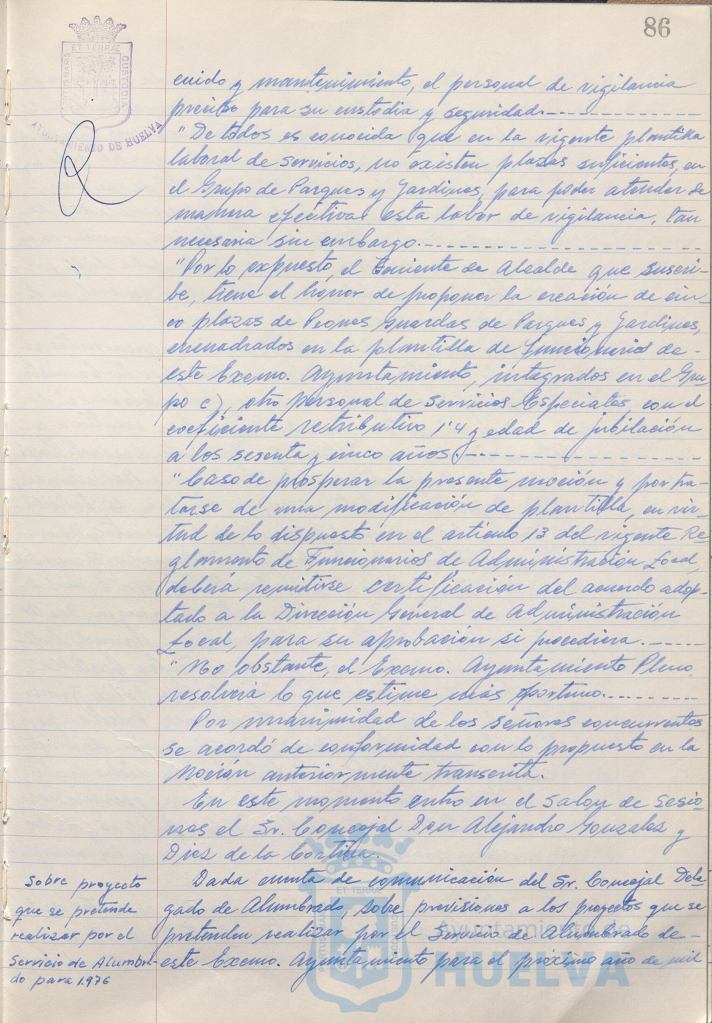 86
ET TERRAE
CUSTODIA
AYUNTAMIENTO DE HUELVA
cuido y mantenimiento, el personal de vigilancia
preciso para su custodia y seguridad.
"De todos es conocida que en la vigente plantilla
laboral de servicios, no existen plazas suficientes, en
el Grupo de Parques y Jardines, para poder atender de
manera efectiva esta labor de vigilancia, tan
necesaria sin embargo.
"Por lo expuesto, el Teniente de Alcalde que suscri-
be, tiene el honor de proponer la creación de cin-
co plazas de Peones Guardas de Parques y Jardines,
encuadrados en la plantilla de funcionarios de-
este Excmo. Ayuntamiento, integrados en el Gru-
po c), otro personal de Servicios Especiales, con el
coeficiente retributivo 1'4 y edad de jubilación
a los sesenta y cinco años.
"Caso de prosperar la presente moción y por tra-
tarse de una modificación de plantilla, en vir-
tud de lo dispuesto en el artículo 13 del vigente Re-
glamento de Funcionarios de Administración Local,
deberá remitirse certificación del acuerdo adop-
tado a la Dirección General de Administración
Local, para su aprobación si procediera.
"No obstante, el Excmo. Ayuntamiento Pleno,
resolverá lo que estime más oportuno.
Por unanimidad de los señores concurrentes
se acordó de conformidad con lo propuesto en la
Moción anteriormente transcrita.
En este momento entro en el Salon de Sesio-
nes el Sr. Concejal Don Alejandro Gonzalez y
Diez de la Cortilla.
Sobre proyecto
que se pretende
realizar por el
Servicio de Alumbra-
do para 1.976
Dada cuenta de comunicación del Sr. Concejal Dele-
gado de Alumbrado, sobre previsiones a los proyectos que se
pretenden realizar por el Servicio de Alumbrado de-
este Excmo. Ayuntamiento para el próximo año de mil
Ayuntamiento de
HUELVA